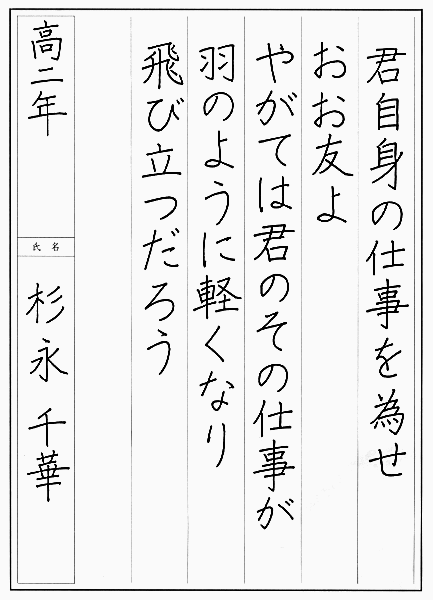 君自身の仕事を為せ
おお友よ
やがては君のその仕事が
羽のように軽くなり
飛び立つだろう
高二年
氏名
杉永千華